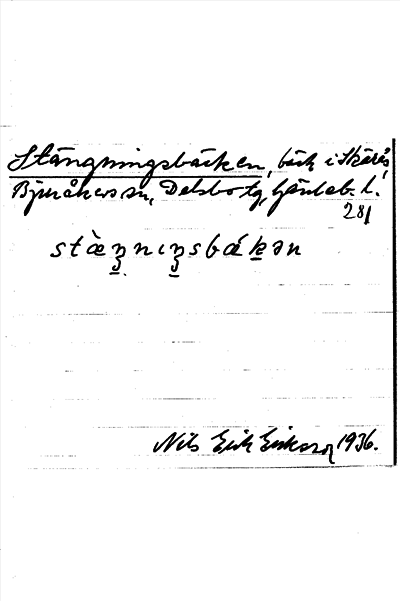 Stängningsbäcken, bäck i Skärås,
Bjuråkers sn, Delsbo tg, Gävleb. l.
281
stæ̀ŋnıŋsbákən
Nils Erik Erikson 1936.